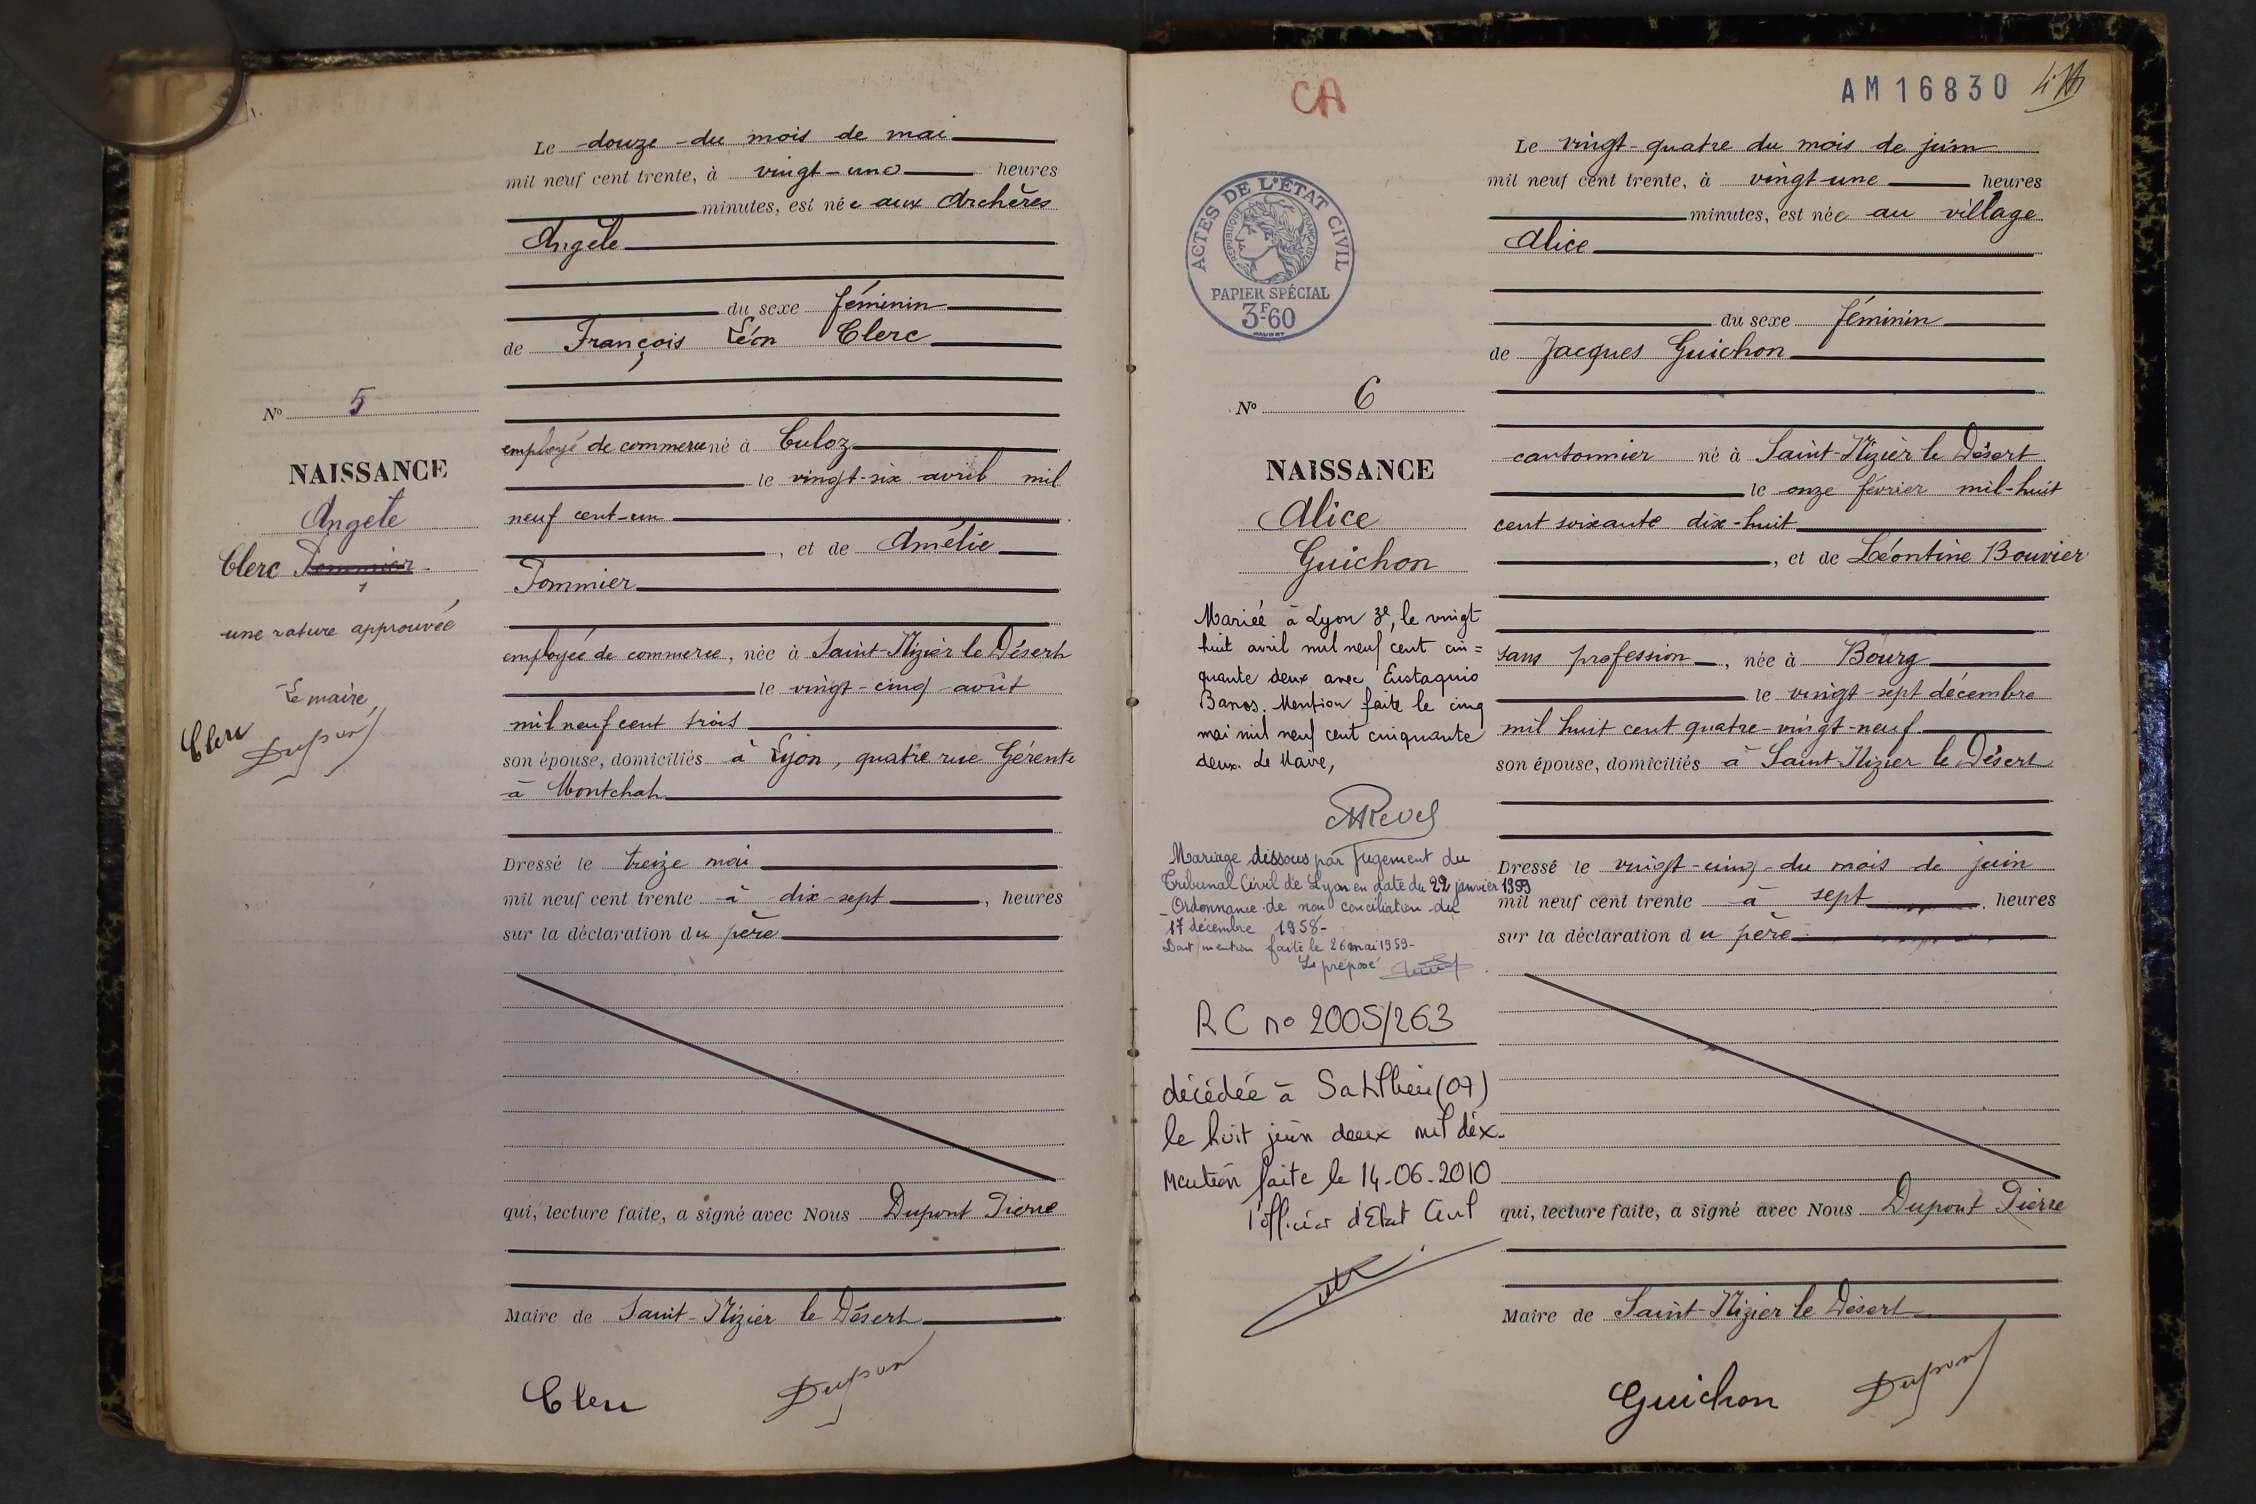 Le douze du mois de mai
mil neuf cent trente, à vingt-une heures
minutes, est née aux Archères
Angèle
du sexe féminin
de François Léon Clerc
employé de commerce né à Culoz
le vingt-six avril mil
neuf cent-un
, et de Amélie
Pommier
employée de commerce, née à Saint-Nizier le Désert
le vingt-cinq août
mil neuf cent trois
son épouse, domiciliés à Lyon, quatre rue Gérente
à Montchat
Dressé le treize mai
mil neuf cent trente à dix-sept, heures
sur la déclaration du père
qui, lecture faite, a signé avec Nous Dupont Pierre
Maire de Saint-Nizier le Désert
Clerc Dupont
No 5
NAISSANCE
Angèle
Clerc Pommier
une rature approuvée
Le maire,
Clerc Dupont
CA
AM16830
ACTES DE L'ÉTAT CIVIL
RÉPUBLIQUE FRANÇAISE
PAPIER SPÉCIAL
3F-60
Le vingt-quatre du mois de juin
mil neuf cent trente, à vingt-une heures
minutes, est née au village
Alice
du sexe féminin
de Jacques Guichon
cantonnier né à Saint-Nizier le Désert
le onze février mil-huit
cent soixante dix-huit
, et de Léontine Bouvier
sans profession, née à Bourg
le vingt-sept décembre
mil huit cent quatre-vingt-neuf
son épouse, domiciliés à Saint-Nizier le Désert
Dressé le vingt-cinq du mois de juin
mil neuf cent trente à sept, heures
sur la déclaration du père
qui, lecture faite, a signé avec Nous Dupont Pierre
Maire de Saint-Nizier le Désert
Guichon Dupont
No 6
NAISSANCE
Alice
Guichon
Mariée à Lyon 3e, le vingt
huit avril mil neuf cent cin=
quante deux avec Eustaquio
Banos. Mention faite le cinq
mai mil neuf cent cinquante
deux. Le Maire,
Revel
Mariage dissous par Jugement du
Tribunal Civil de Lyon en date du 22 janvier 1959
- Ordonnance de non conciliation du
17 décembre 1958-
Dont mention faite le 26 mai 1959-
Le préposé
RC no 2005/263
décédée à Satillieu (07)
le huit juin deux mil dix.
Mention faite le 14-06-2010
l'officier d'Etat Civil